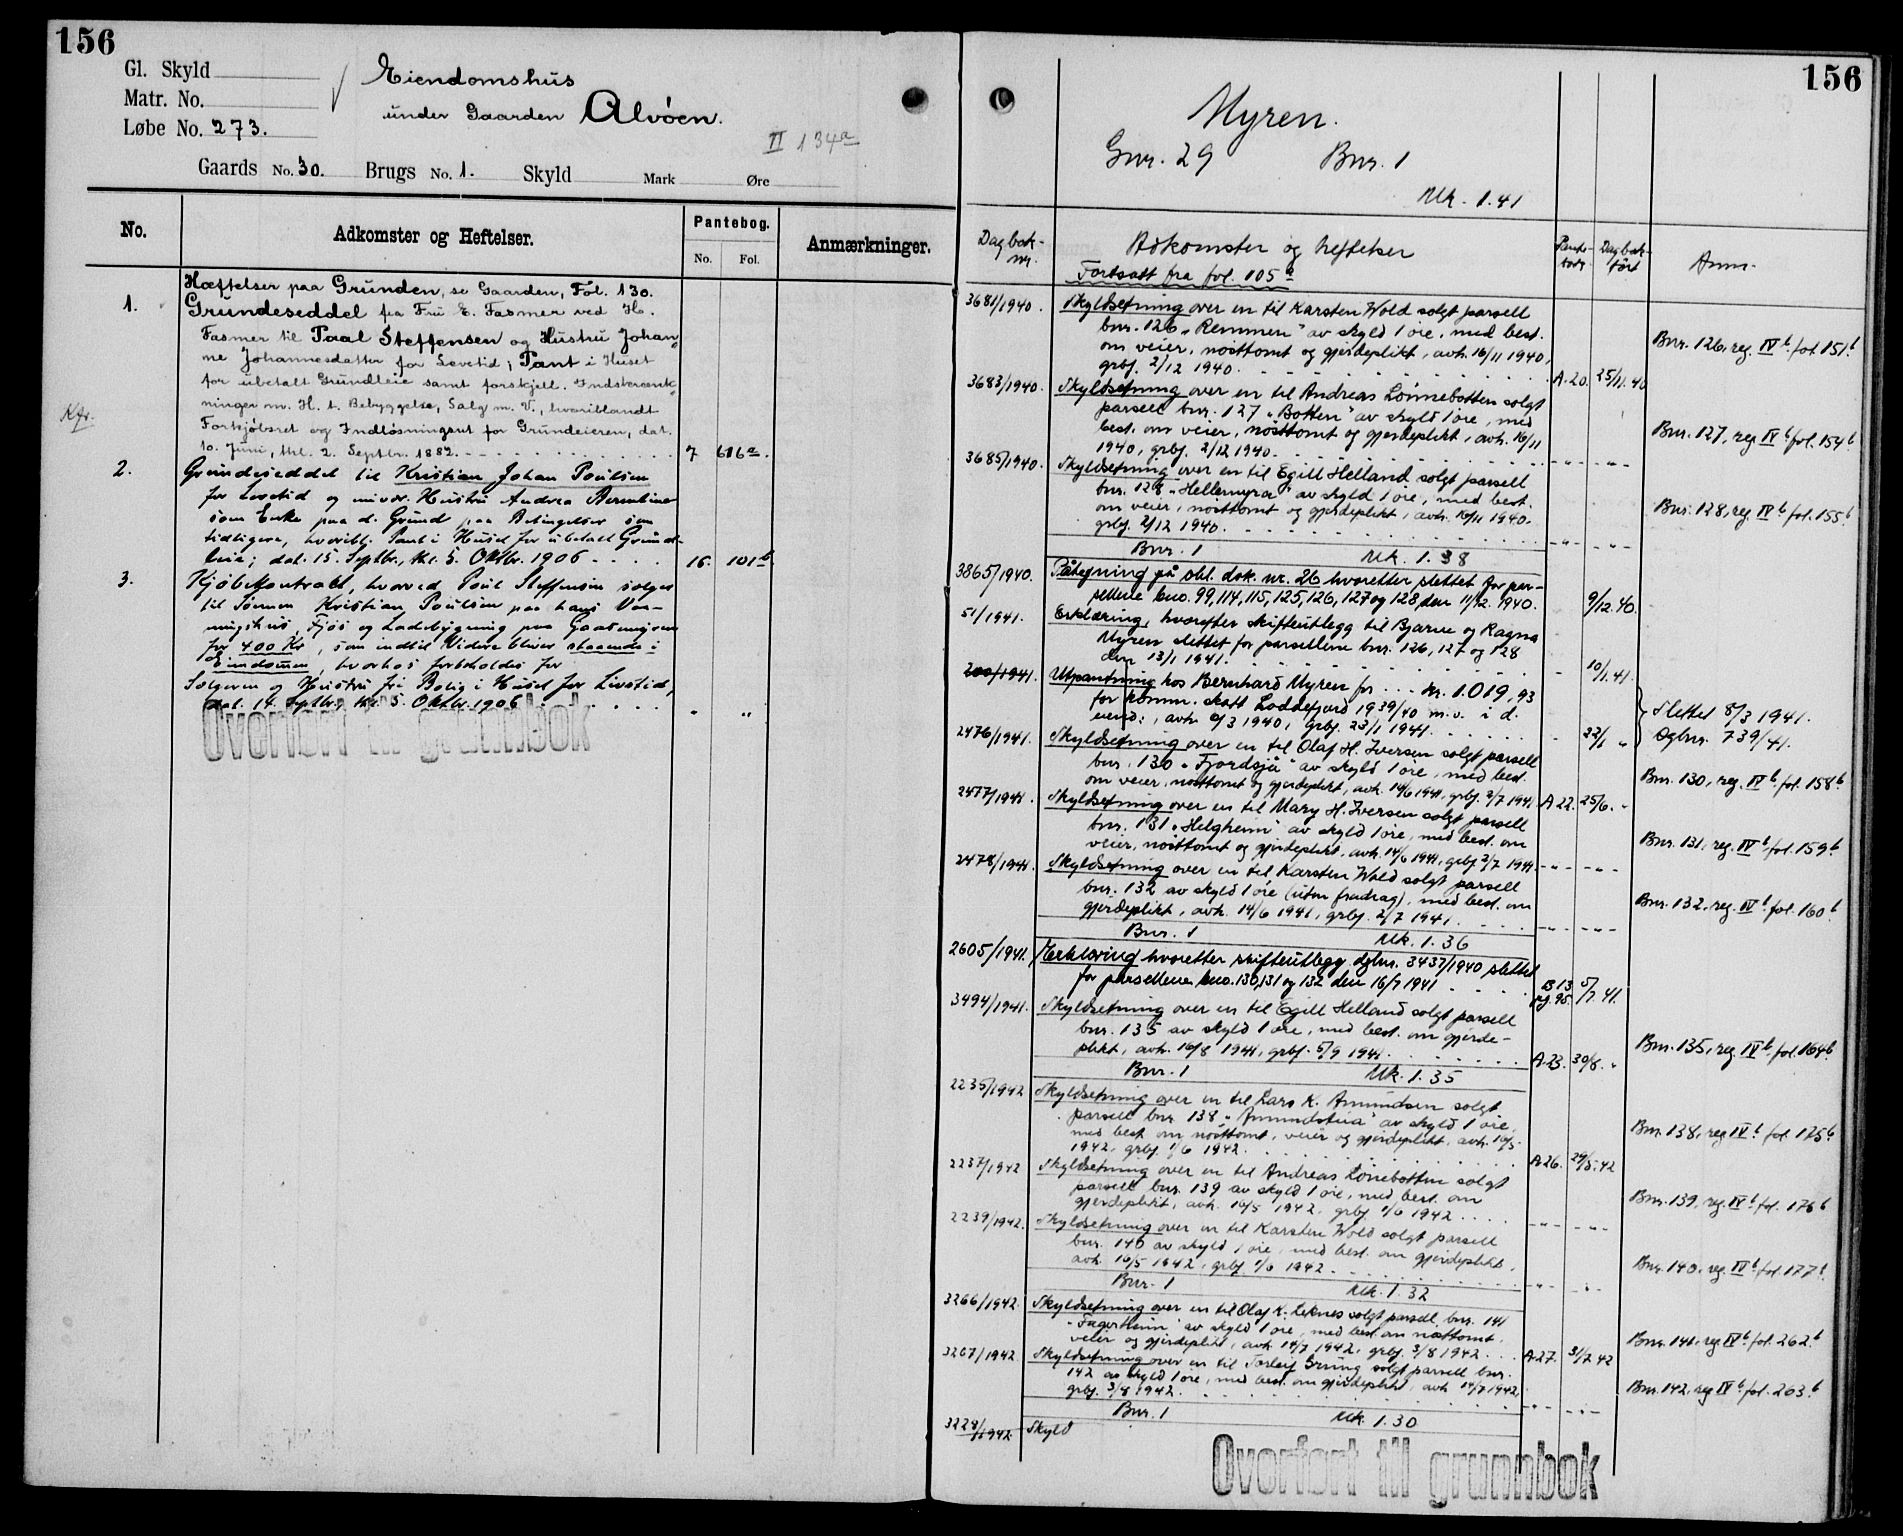 156
Gl. Skyld
Matr. No.
Løbe No. 273.
Eiendomshus
under Gaarden Alvöen.
II 134a
Gaards No. 30. Brugs No. 1. Skyld Mark Øre
No. Adkomster og Heftelser. Pantebog. No. Fol. Anmærkninger.
Hæftelser paa Grunden, se Gaarden, Fol. 130.
1. Grundeseddel fra Fru E. Fasmer ved H.
Fasmer til Paal Steffensen og Hustru Johan-
ne Johannesdatter for Levetid; Pant i Huset
for ubetalt Grundleie samt forskjell. Indskrænk-
ninger m. H. t. Bebyggelse, Salg m. V., hvoriblandt
Forkjöbsret og Indlösningsret for Grundeieren, dat.
10. Juni, thl. 2. Septbr. 1882. 7 616a.
2. Grundeseddel til Kristian Johan Poulsen
for Levetid og nuvær. Hustru Andrea Berentine
som Enke paa d. Grund paa Betingelser som
tidligere, hvoribl. Pant i Huset for ubetalt Grund-
leie; dat. 15. Septbr., thl. 5. Oktbr. 1906 16. 101b
3. Kjöbekontrakt, hvorved Poul Steffensen sælger
til Sønnen Kristian Poulsen paa hans Vaa-
ningshus, Fjøs og Ladebygning paa Gaarden
for 400 Kr, som indtil Videre bliver staaende i
Eiendommen, hvorhos forbeholdes for
Sælgeren og Hustru fri Bolig i Huset for Livstid,
dat. 14. Septbr, thl. 5. Oktbr. 1906 " "
Overført til grunnbok
156
Myren.
Gnr. 29 Bnr. 1
Mk. 1.41
Dagbok-nr. Adkomster og heftelser Pante-bok Dagbok-ført Anm.
Fortsatt fra fol. 105a
3681/1940. Skyldsetning over en til Karsten Wold solgt parsell
bnr. 126 "Remmen" av skyld 1 øre, med best.
om veier, nosttomt og gjerdeplikt, avh. 16/11 1940,
grbj. 2/12 1940. A.20. 25/11.40 Bnr. 126, reg. IVb fol. 151b
3683/1940. Skyldsetning over en til Andreas Lønnebotten solgt
parsell bnr. 127 "Botten" av skyld 1 øre, med
best. om veier, nosttomt og gjerdeplikt, avh. 16/11
1940, grbj. 2/12 1940. Bnr. 127, reg IVb fol. 154b
3685/1940. Skyldsetning over en til Egill Helland solgt parsell
bnr. 128 "Hellemyra" av skyld 1 øre, med best.
om veier, nosttomt og gjerdeplikt, avh. 16/11 1940,
grbj. 2/12 1940. Bnr. 128, reg. IVb fol. 155b
Bnr. 1 Mk. 1.38
3865/1940. Påtegning på obl. dok. nr. 26 hvoretter slettet for par-
sellene bno. 99, 114, 115, 125, 126, 127 og 128, den 11/12. 1940. 9/12.40.
51/1941. Erklæring, hvorefter skifteutlegg til Bjarne og Ragna
Myren slettet for parsellene bnr. 126, 127 og 128
den 13/1 1941. 10/1.41.
200/1941. Utpantning hos Bernhard Myren for kr. 1.019,93
for komm. skatt Loddefjord 1939/40 m.v. i d.
eiend., avh. 9/3 1940, grbj. 23/1 1941. 22/1 " Slettet 8/3 1941. Dgbnr. 739/41.
2476/1941. Skyldsetning over en til Olaf H. Iversen solgt parsell
bnr. 130 "Fjordsjå" av skyld 1 øre, med best.
om veier, nosttomt og gjerdeplikt, avh. 14/6 1941, grbj. 2/7 1941. A 22. 25/6. " Bnr. 130, reg. IVb fol. 158b
2477/1941. Skyldsetning over en til Mary H. Iversen solgt parsell
bnr. 131 "Helgheim" av skyld 1 øre, med best. om
veier, nosttomt og gjerdeplikt, avh. 14/6 1941, grbj. 2/7 1941. Bnr. 131, reg. IVb fol. 159b
2478/1941. Skyldsetning over en til Karsten Wold solgt parsell
bnr. 132 av skyld 1 øre (uten fradrag), med best. om
gjerdeplikt, avh. 14/6 1941, grbj. 2/7 1941. Bnr. 132, reg. IVb fol. 160b
Bnr. 1 Mk. 1.36
2605/1941. Erklæring hvoretter skifteutlegg dgbnr. 3437/1940 slettet
for parsellene bno. 130, 131 og 132 den 16/7 1941 B 13 pg. 95. 5/7 41.
3494/1941. Skyldsetning over en til Egill Helland solgt parsell
bnr. 135 av skyld 1 øre, med best. om gjerde-
plikt, avh. 16/8 1941, grbj. 5/9 1941. A.23. 30/8. " Bnr. 135, reg IVb fol. 164b
Bnr. 1 Mk. 1.35
2235/1942 Skyldsetning over en til Lars K. Amundsen solgt
parsell bnr. 138 "Amundstua" av skyld 1 øre,
med best. om nosttomt, veier og gjerdeplikt, avh. 16/5
1942, grbj. 1/6 1942. A 26. 29/5.42 Bnr. 138, reg IVb fol. 175b
2237/1942 Skyldsetning over en til Andreas Lønebotten solgt
parsell bnr. 139 av skyld 1 øre, med best. om
gjerdeplikt, avh. 16/5 1942, grbj. 1/6 1942 Bnr. 139, reg. IVb fol. 176b
2239/1942. Skyldsetning over en til Karsten Wold solgt parsell
bnr. 140 av skyld 1 øre, med best. om gjerdeplikt,
avh. 16/5 1942, grbj 1/6 1942. Bnr. 140, reg. IVb fol. 177b
Bnr. 1 Mk. 1.32
3266/1942. Skyldsetning over en til Olaf K. Leknes solgt parsell bnr. 141
"Fagerheim" av skyld 1 øre, med best. om nosttomt,
veier og gjerdeplikt, avh. 14/7 1942, grbj. 3/8 1942. A.27. 31/7.42 Bnr. 141, reg IVb fol. 262b
3267/1942. Skyldsetning over en til Torleif Grung solgt parsell bnr.
142 av skyld 1 øre, med best. om gjerdeplikt, avh. 14/7 1942,
grbj. 3/8 1942. Bnr. 142, reg IVb fol. 263b
Bnr. 1 Mk. 1.30
3228/1942. Skyld
Overført til grunnbok